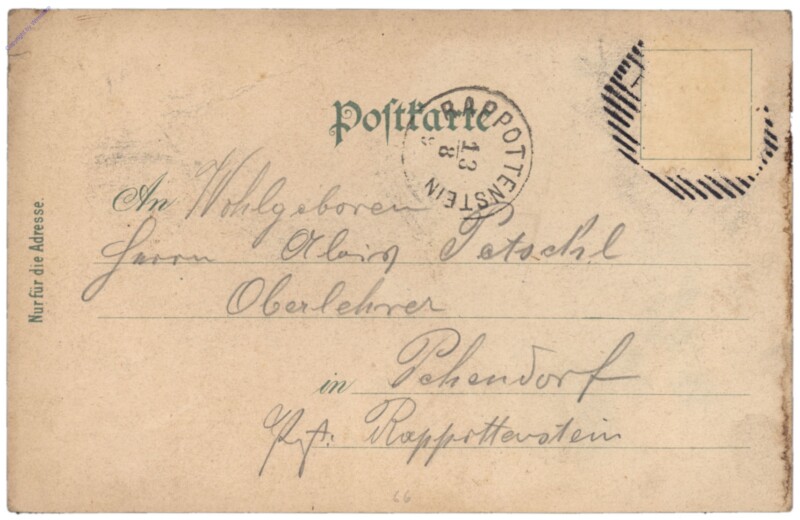 Postkarte
RAPPOTTENSTEIN
13
8
An Wohlgeboren
Herrn Alois Petschl
Oberlehrer
in Pehendorf
Pst: Rappottenstein
Nur für die Adresse.
66